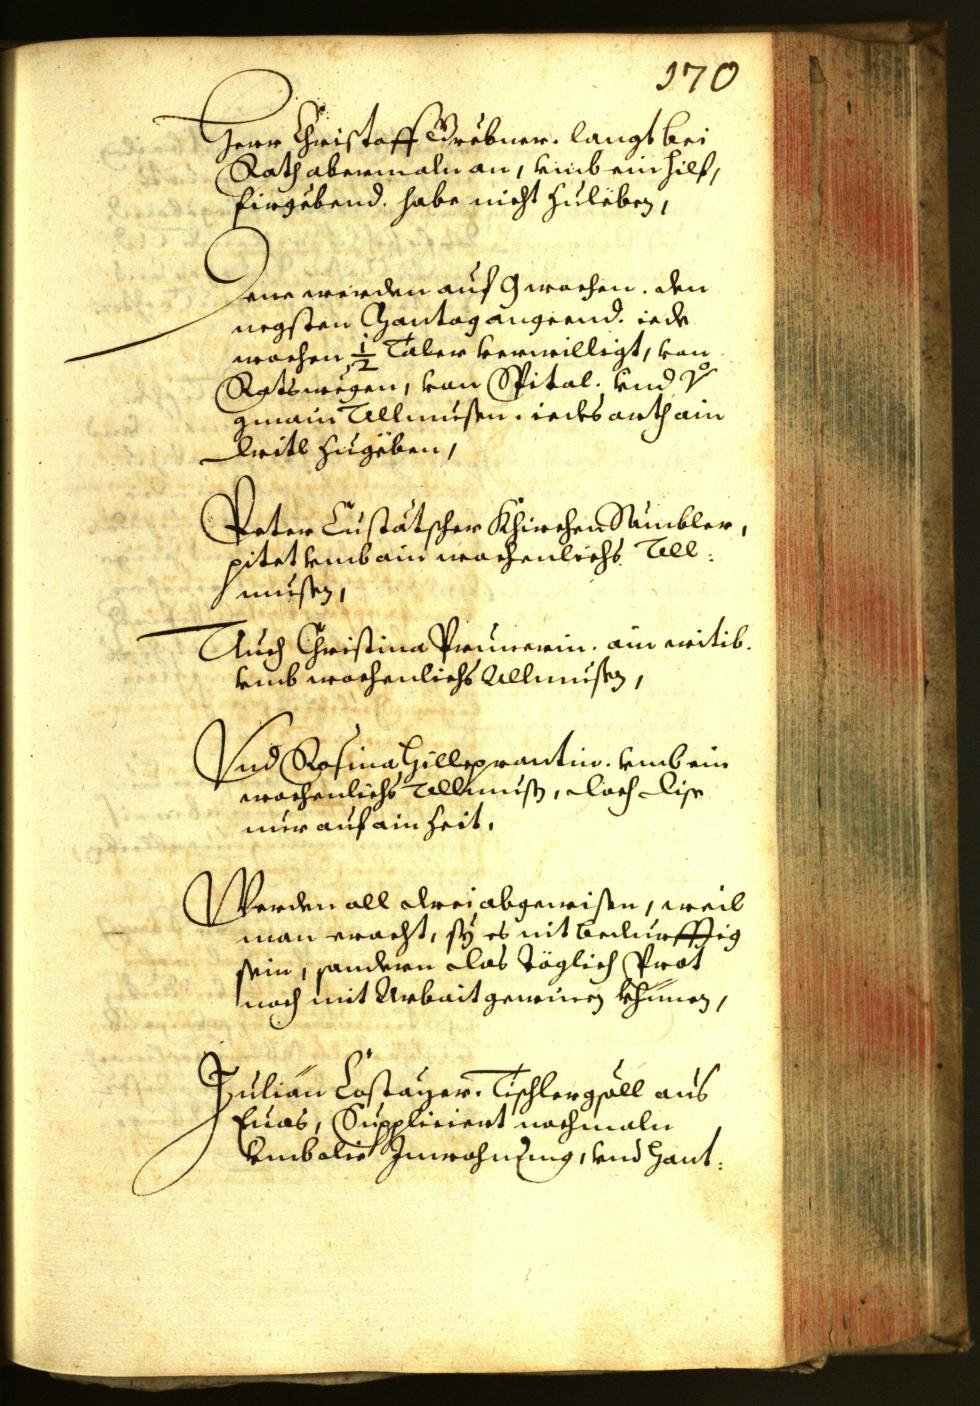 170
Herr Christoff Grebner. langt bei
Rath abermaln an, vmb ein hilf,
firgebend. habe nicht zuleben,
Jme werden auf 9 wochen. den
negsten Montag angeend. iede
wochen ½ Taler verwilligt, von
Ratswegen, von Spital. vnd
gmain Allmuesen. iedes orth ain
dritl zugeben,
Peter Custatscher Khirchen Sambler,
pitet vmb ain wochenlichs All:
muesen,
Auch Christina Prunerin. ain witib.
vmb wochenlichs Allmuesen,
Vnd Rosina Hilleprantin. vmb ein
wochenlichs Allmuesen, doch dise
nur auf ain Zeit,
Werden all drei abgewisen, weil
man eracht, sy es nit bedurfftig
sein, sondern das täglich Prot
noch mit Arbait gewinen khinen,
Julian Costayer. Tischlergsöll aus
Euas, Suppliciert nochmaln
vmb die Inwohnung, vnd Hant: